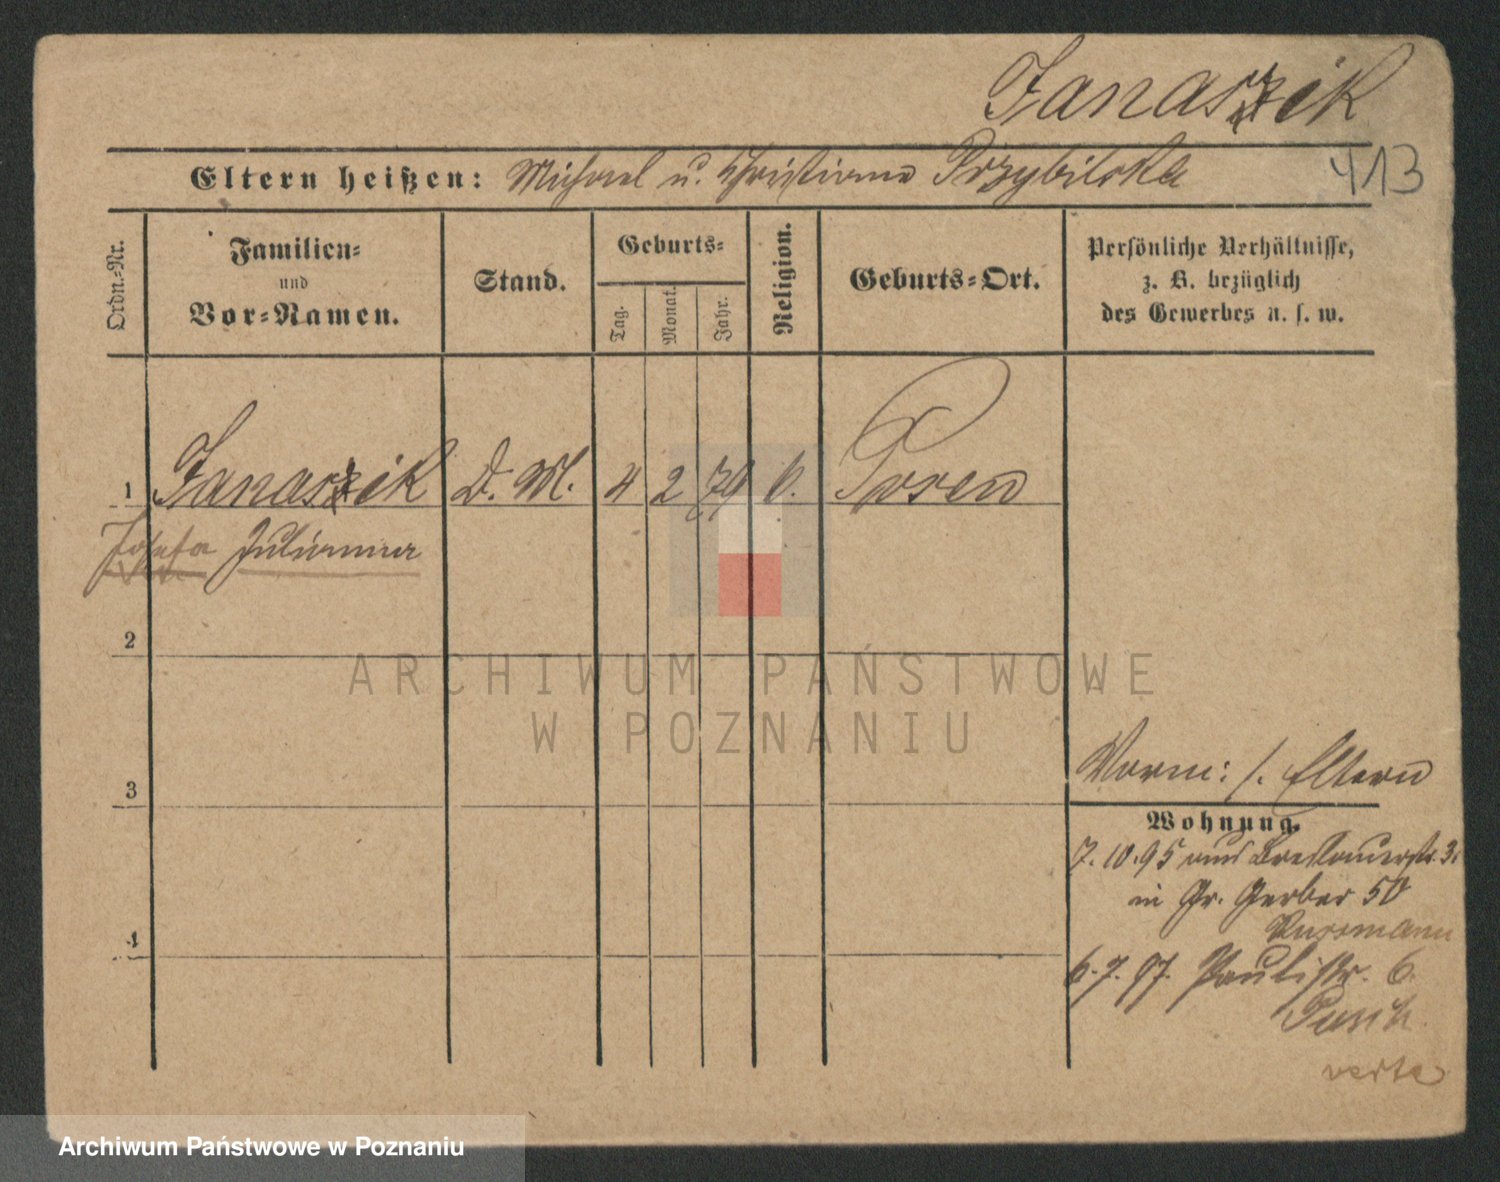 Janaszik
Eltern heißen: Michael u. Christiane Przybilska
413
Ordn.=Nr.
Familien=
und
Vor=Namen.
Stand.
Geburts=
Tag.
Monat.
Jahr.
Religion.
Geburts=Ort.
Persönliche Verhältnisse,
z. B. bezüglich
des Gewerbes u. s. w.
1 Janaszik D. M. 4 2 79 k. Posen
Josefa Julianna
2
3
4
Vorm: s. Eltern
Wohnung.
7.10.95 aus Breslauerstr. 3.
in Gr. Gerber 50
6.7.97. Paulistr. 6.
verte
ARCHIWUM PAŃSTWOWE
W POZNANIU
Archiwum Państwowe w Poznaniu